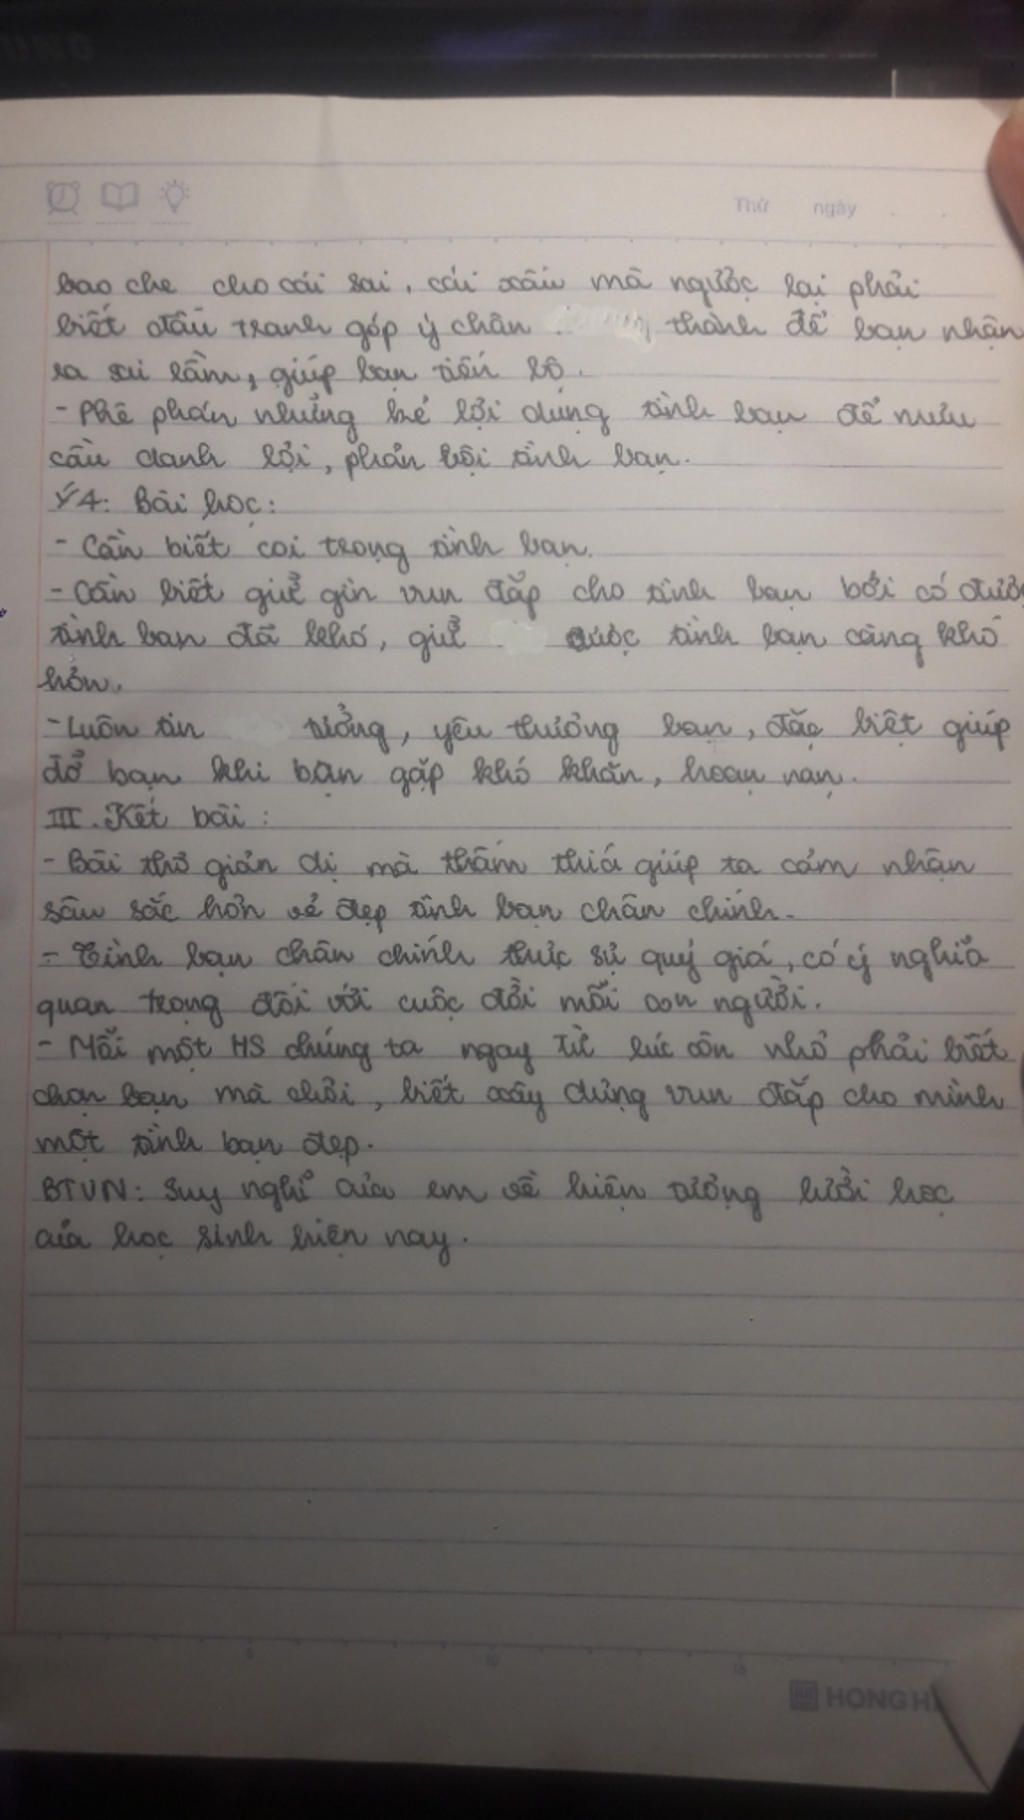 UNG
Thứ ngày
bao che cho cái sai, cái xấu mà ngược lại phải
biết đấu tranh góp ý chân thành để bạn nhận
ra sai lầm, giúp bạn tiến bộ.
- Phê phán những kẻ lợi dụng tình bạn để mưu
cầu danh lợi, phản bội tình bạn.
Ý4: Bài học:
- Cần biết coi trọng tình bạn.
- Cần biết giữ gìn vun đắp cho tình bạn bởi có được
tình bạn đã khó, giữ được tình bạn càng khó
hơn.
- Luôn tin tưởng, yêu thương bạn, đặc biệt giúp
đỡ bạn khi bạn gặp khó khăn, hoạn nạn.
III. Kết bài:
- Bài thơ giản dị mà thấm thía giúp ta cảm nhận
sâu sắc hơn vẻ đẹp tình bạn chân chính.
- Tình bạn chân chính thực sự quý giá, có ý nghĩa
quan trọng đối với cuộc đời mỗi con người.
- Mỗi một HS chúng ta ngay từ lúc còn nhỏ phải biết
chọn bạn mà chơi, biết xây dựng vun đắp cho mình
một tình bạn đẹp.
BTVN: Suy nghĩ của em về hiện tượng lười học
của học sinh hiện nay.
5 10 15
HONG H